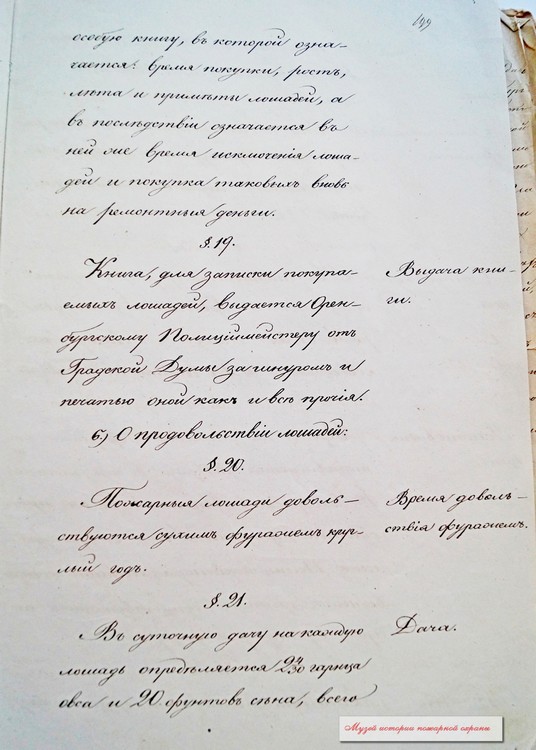 149
особую книгу, въ которой озна-
чается: время покупки, ростъ,
лѣта и примѣты лошадей, а
въ послѣдствіи означается въ
ней же время исключенія лоша-
дей и покупка таковыхъ вновь
на ремонтныя деньги.
§. 19.
Книга, для записки покупа-
емыхъ лошадей, выдается Орен-
бургскому Полиціймейстеру отъ
Градской Думы за шнуромъ и
печатью оной какъ и всѣ прочія.
Выдача кни-
ги.
б.) О продовольствіи лошадей:
§. 20.
Пожарныя лошади доволь-
ствуются сухимъ фуражемъ круг-
лый годъ.
Время доволь-
ствія фуражемъ.
§. 21.
Въ суточную дачу на каждую
лошадь опредѣляется 2 4/30 гарнца
овса и 20 фунтовъ сѣна, всего
Дача.
Музей истории пожарной охраны